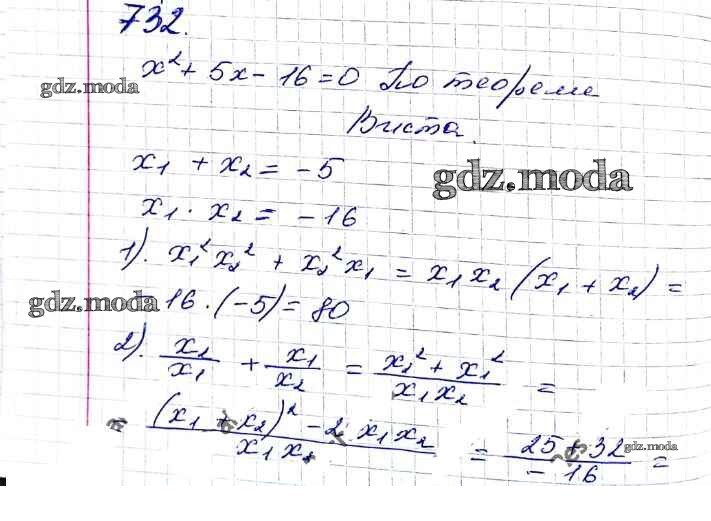 732.
x² + 5x - 16 = 0 По теореме
gdz.moda
Виета.
x₁ + x₂ = -5
gdz.moda
x₁ · x₂ = -16
1). x₁²x₂² + x₂²x₁ = x₁x₂(x₁ + x₂) =
gdz.moda 16 · (-5) = 80
2). x₂/x₁ + x₁/x₂ = (x₁² + x₁²)/(x₁x₂) =
= ((x₁ + x₂)² - 2x₁x₂)/(x₁x₂) = (25 + 32)/(-16) =
gdz.moda